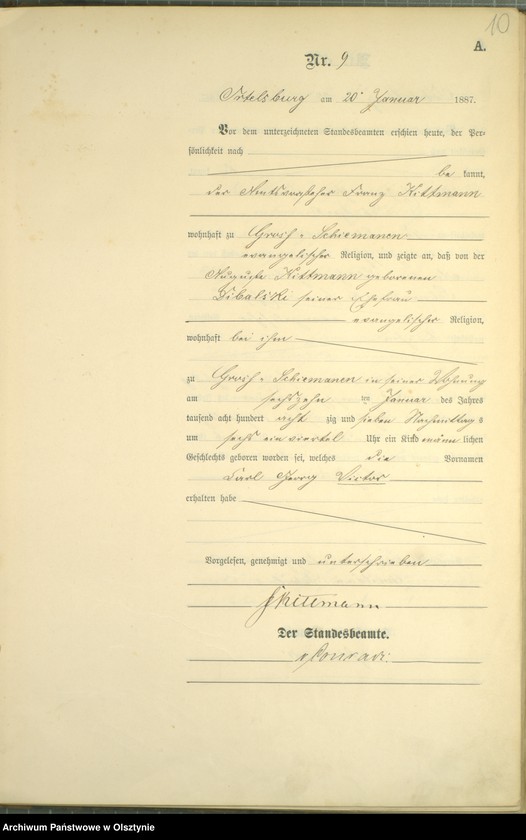 10
A.
Nr. 9
Ortelsburg am 20ten Januar 1887.
Vor dem unterzeichneten Standesbeamten erschien heute, der Per-
sönlichkeit nach
be kannt,
der Amtsvorsteher Franz Kittmann
wohnhaft zu Groß-Schiemanen
evangelischer Religion, und zeigte an, daß von der
Auguste Kittmann geborenen
Dibalski seiner Ehefrau
evangelischer Religion,
wohnhaft bei ihm
zu Groß-Schiemanen in seiner Wohnung
am sechszehn ten Januar des Jahres
tausend acht hundert acht zig und sieben Nachmittags
um sechs ein viertel Uhr ein Kind männ lichen
Geschlechts geboren worden sei, welches die Vornamen
Carl Georg Victor
erhalten habe
Vorgelesen, genehmigt und unterschrieben
FKittmann
Der Standesbeamte.
Conradi
Archiwum Państwowe w Olsztynie